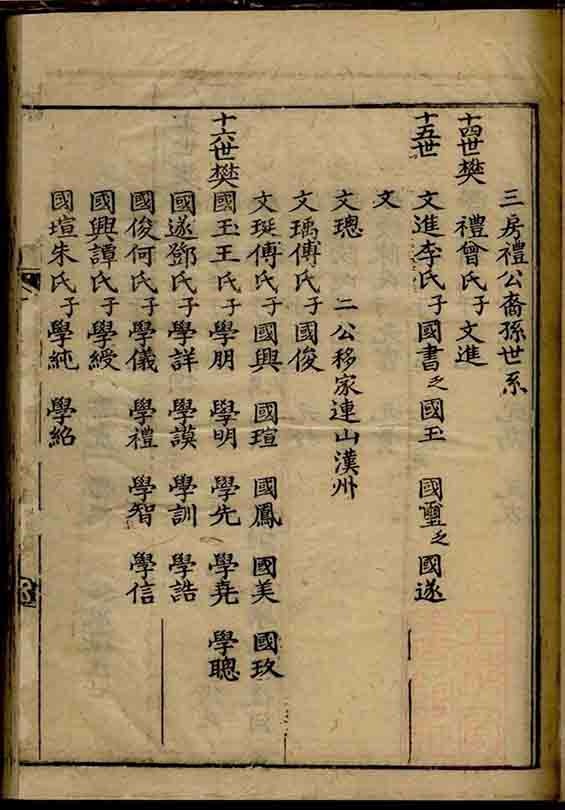 三房禮公裔孫世系
十四世樊 禮曾氏子文進
十五世 文進李氏子國書乏國玉 國璽乏國遂
文
文璁 二公移家連山漢州
文瑀傅氏子國俊
文珽傅氏子國興 國瑄 國鳳 國美 國玫
十六世樊國玉王氏子學朋 學明 學先 學堯 學聰
國遂鄧氏子學詳 學謨 學訓 學誥
國俊何氏子學儀 學禮 學智 學信
國興譚氏子學綬
國瑄朱氏子學純 學紹